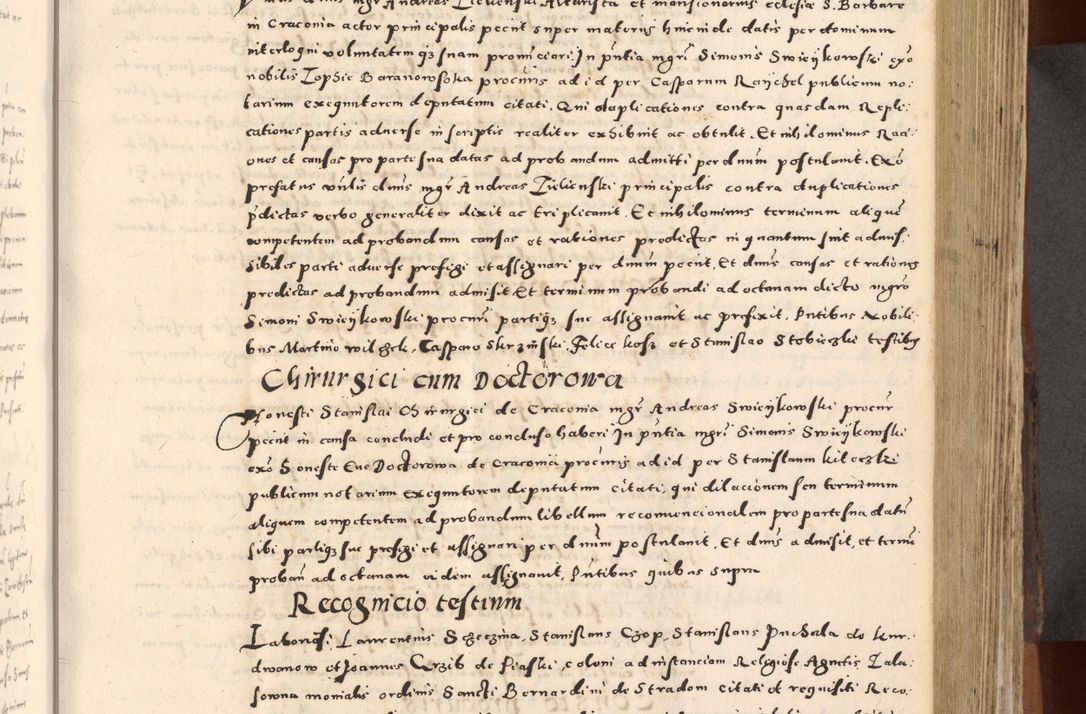 mgr Andreas Zielienski Altarista et mansionarius eclesie S. Barbare
in Craconia actor principalis peciit super materiis hincinde datis per dominum
interloqui voluntatem qz suam pronunciari In pntia mgri Simonis Swieykowski exo
nobilis Zophie Baranowszka procuris ad id per Casparum Raychel publicum no:
tarium exequutorem deputatum citati. Qui duplicationes contra quasdam Reple:
cationes partis adverse in scriptis realiter exhibuit ac obtulit. Et nihilominus Raci:
ones et causas pro parte sua datas ad probandum admitti per dnum postulavit. Exo
prefatus dnus mgr Andreas Zielienski principalis contra duplicationes
pdictas verbo generaliter dixit ac triplicavit. Et nihilominus terminum alique
competentem ad probandum causas et rationes predictas in quantum sint admis:
sibiles parti adverse prefigi et assignari per dnum peciit. Et dnus causas et rationes
predictas ad probandum admisit Et terminum probandi ad octavam dicto mgro
Simoni Swieykowski procuri partiqz sue assignavit ac prefixit. Pntibus Nobili:
bus Martino Casparo Skrzinski, Felice Kosz et Stanislao testibus
Chirurgici cum Doctorowa
Honesti Stanislai Chirurgici de Craconia mgr Andreas Swieykowski procur
peciit in causa concludi et pro concluso haberi In pntia mgri Simonis Swieykowski
exo Honeste Eve Doctorowa de Craconia procuris ad id per Stanislaum
publicum notarium exequutorem deputatum citati, qui dilacionem seu terminum
aliquem competentem ad probandum libellum reconvencionalem pro parte sua datum
sibi partiqz sue prefigi et assignari per dnum postulavit. Et dnus admisit, et termi
proban ad octavam eidem assignavit, Pntibus quibus supra
Recognicio testium
Laboriosi Laurentius Szeczina, Stanislaus Czop, Stanislaus Puchala de Kur:
dwanow et Joannes Grzib de Piaski, coloni ad instanciam Religiose Agnetis Zalu:
sowna monialis ordinis Sancti Bernardini de Stradom citati et requisiti Reco: